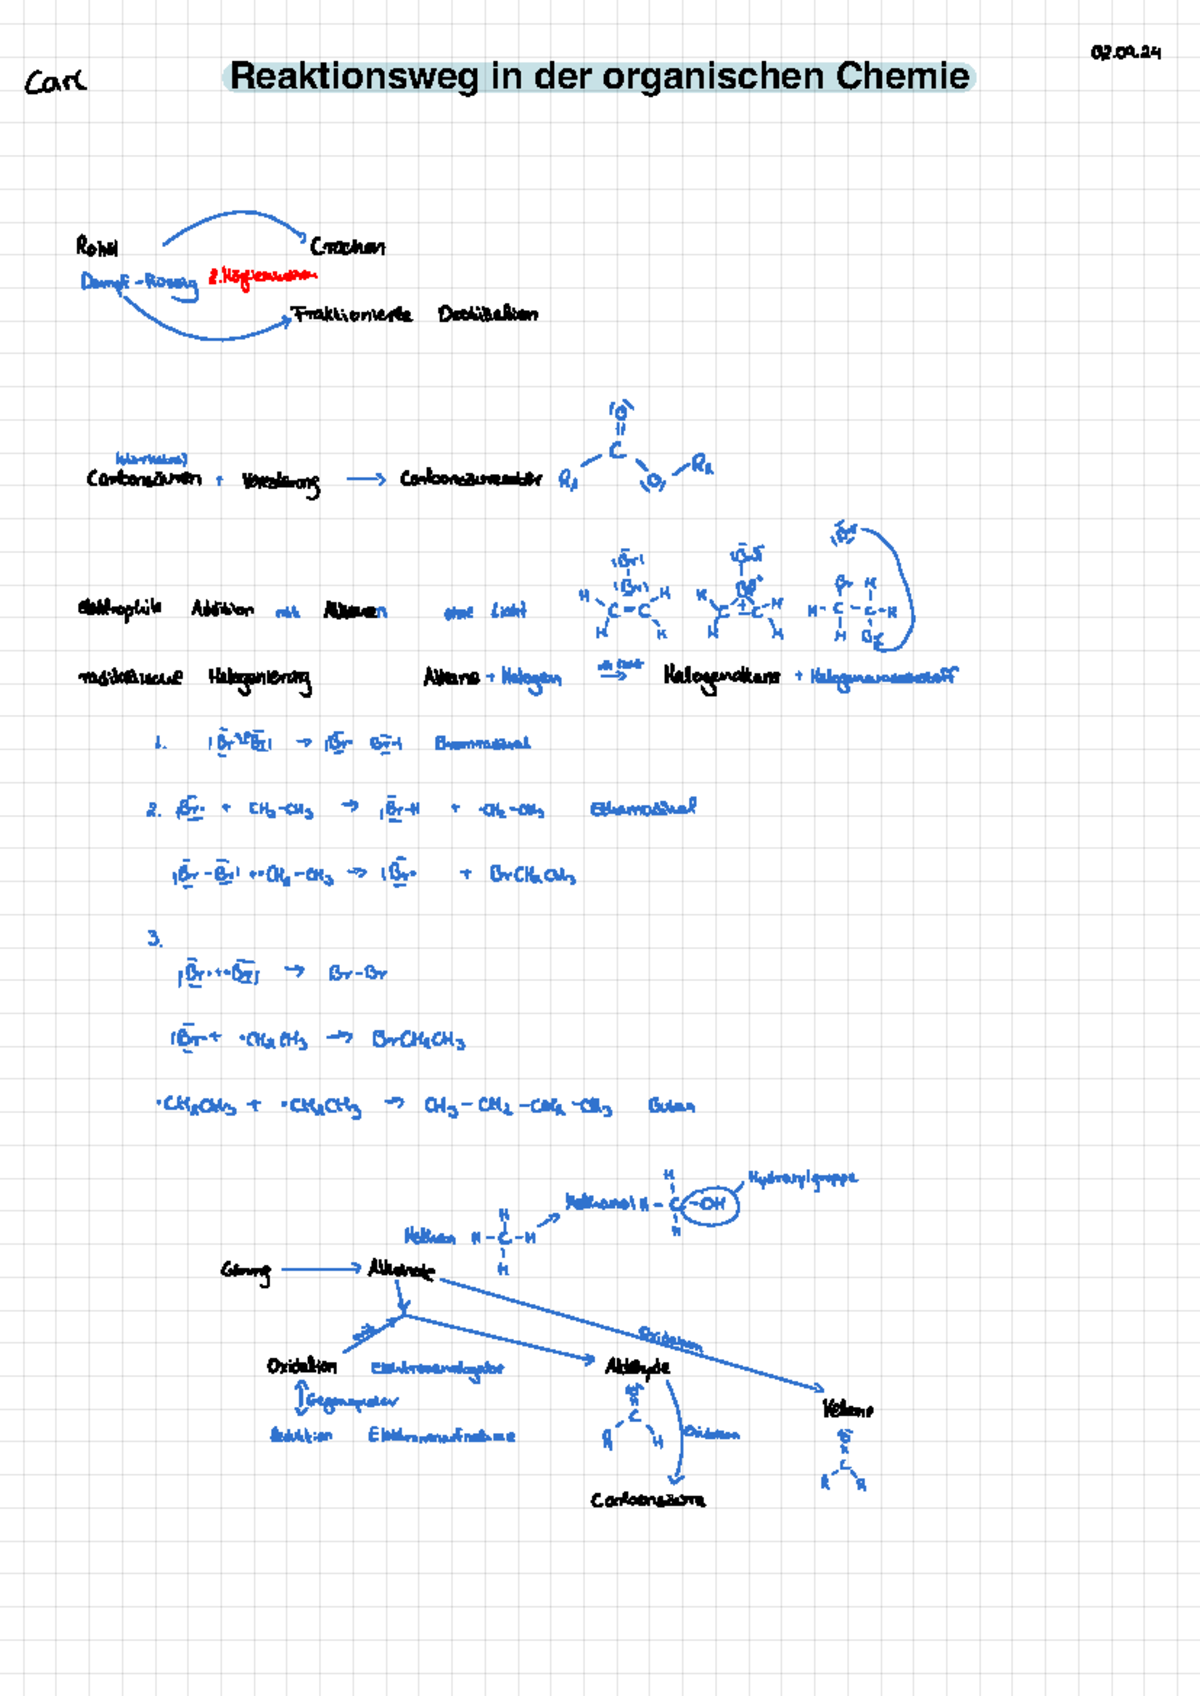 02.09.24
Carl
Reaktionsweg in der organischen Chemie
Rohöl
Cracken
Fraktionierte Destillation
Carbonsäuren + Veresterung → Carbonsäureester
O
C
R₁ O R₂
elektrophile Addition mit Alkenen ohne Licht
radikalische Halogenierung Alkane + Halogen → Halogenalkane + Halogenwasserstoff
1. |Br Br| → |Br· Br| Bromradikal
2. |Br· + CH₃-CH₃ → |Br-H + ·CH₂-CH₃ Ethanradikal
|Br-Br| + ·CH₂-CH₃ → |Br· + BrCH₂CH₃
3.
|Br· + ·Br| → Br-Br
|Br· + ·CH₂CH₃ → BrCH₂CH₃
·CH₂CH₃ + ·CH₂CH₃ → CH₃-CH₂-CH₂-CH₃ Butan
Hydroxylgruppe
Methanol H-C-OH
Methan H-C-H
Gärung → Alkanole
Oxidation
Oxidation Elektronenabgabe Aldehyde
Gegenspieler
Ketone
Reduktion Elektronenaufnahme
R H Oxidation
R R
Carbonsäure